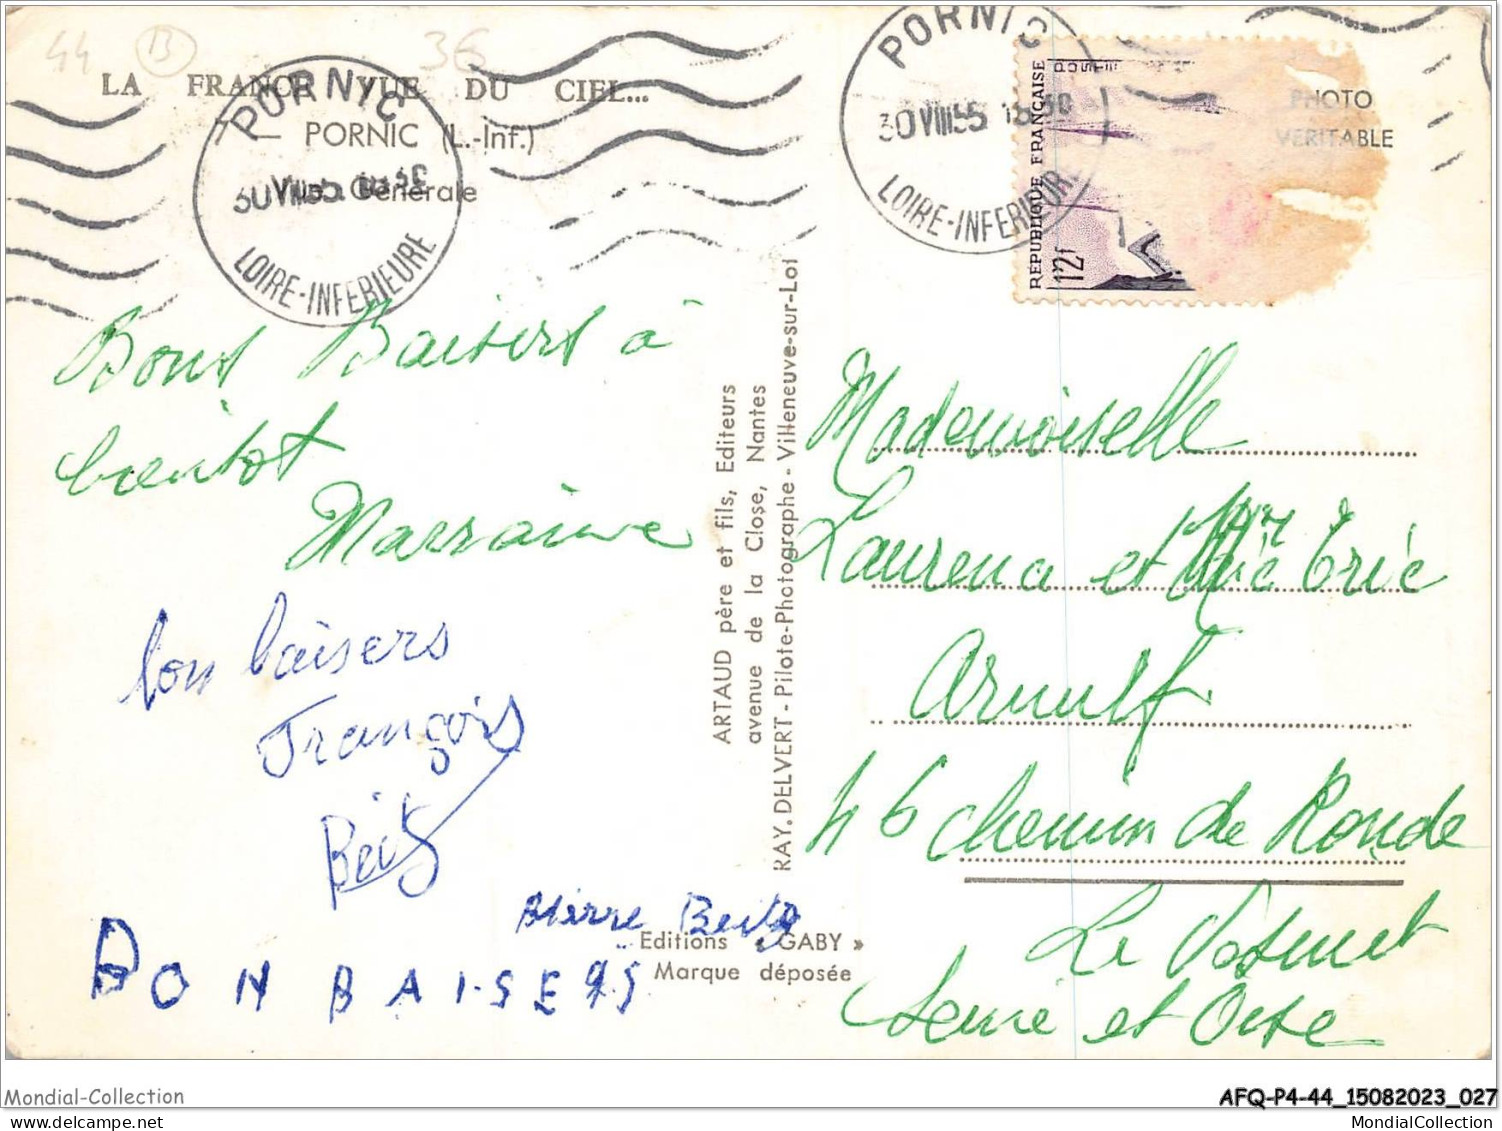 44 B 36
LA FRANCE VUE DU CIEL...
PORNIC (L.-Inf.)
Vue Générale
PORNIC
30 VIII 55
LOIRE-INFERIEURE
PORNIC
30 VIII 55 18 30
LOIRE-INFERIEURE
RÉPUBLIQUE FRANÇAISE
12f
PHOTO
VERITABLE
Bons Baisers à
bientot
Marraine
bon baisers
François
Beitz
Pierre Beitz
BON BAISERS
ARTAUD père et fils, Editeurs
avenue de la Close, Nantes
RAY. DELVERT - Pilote-Photographe - Villeneuve-sur-Lot
Editions « GABY »
Marque déposée
Mademoiselle
Laurence et Mr Eric
Arnulf
46 chemin de Ronde
Le Vésinet
Seine et Oise
Mondial-Collection
AFQ-P4-44_15082023_027
MondialCollection